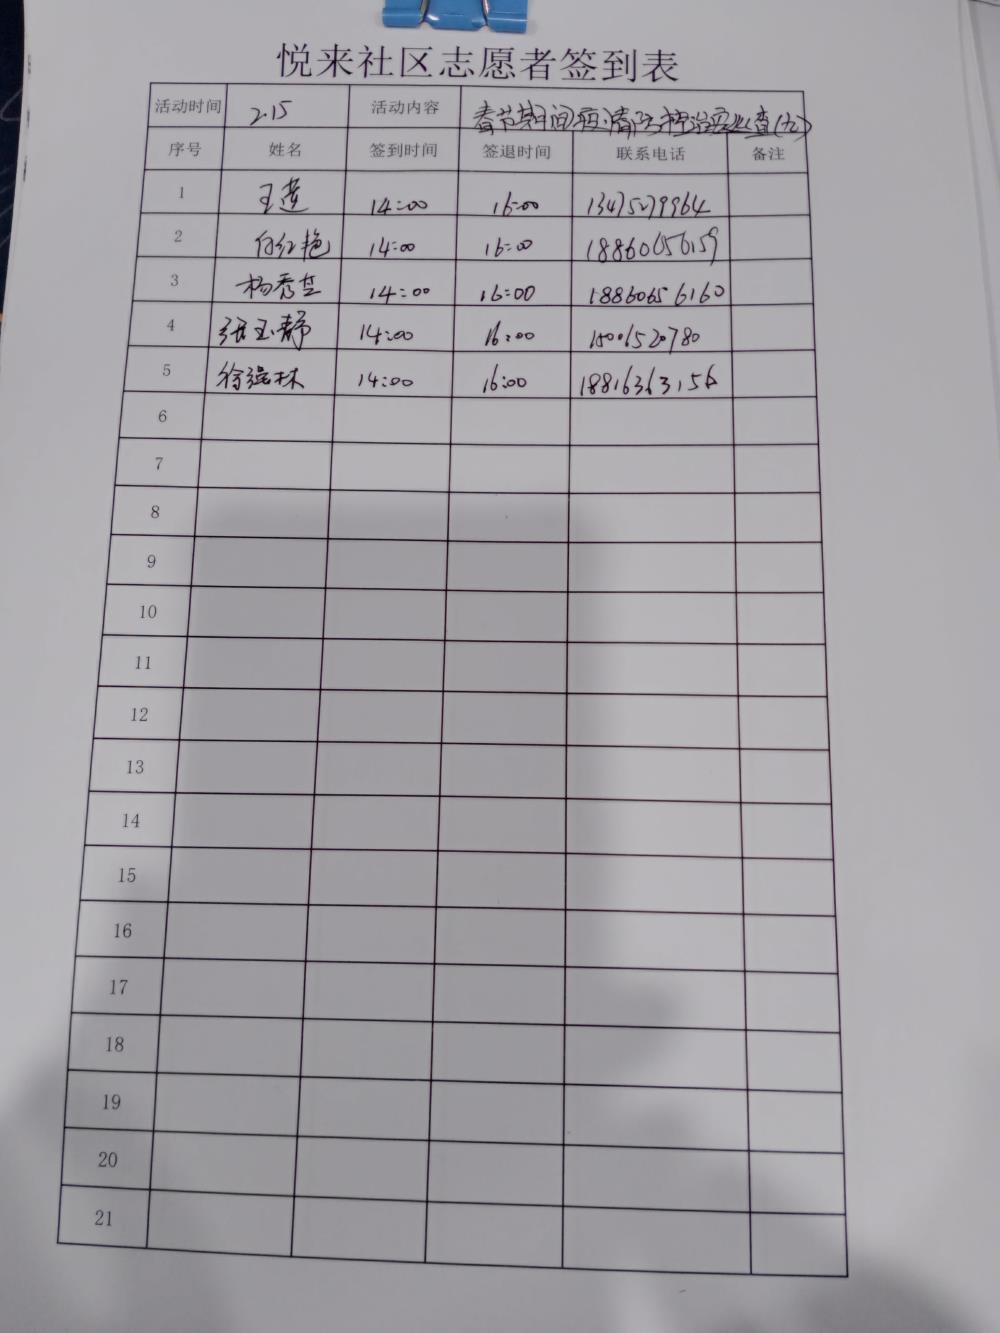 悦来社区志愿者签到表
活动时间 2.15 活动内容 春节期间疫情防控治安巡查(九)
序号 姓名 签到时间 签退时间 联系电话 备注
1 王莲 14:00 16:00 13475279964
2 付红艳 14:00 16:00 18860656159
3 杨秀 14:00 16:00 18860656160
4 张玉静 14:00 16:00 15006520780
5 徐 林 14:00 16:00 18816363156
6
7
8
9
10
11
12
13
14
15
16
17
18
19
20
21